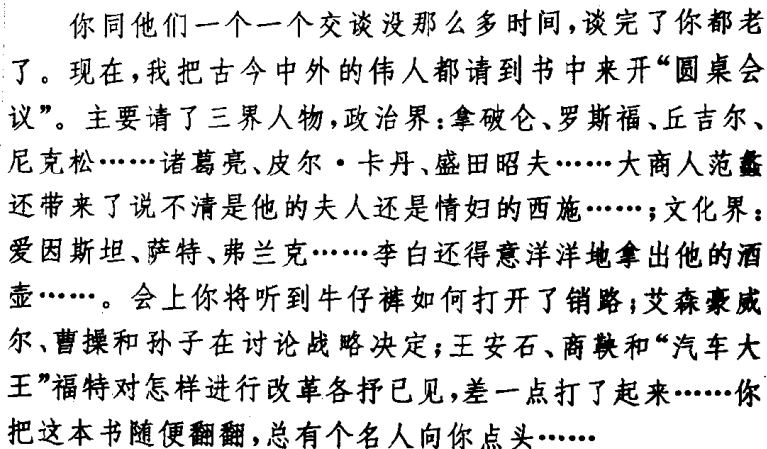 你同他们一个一个交谈没那么多时间,谈完了你都老
了。现在,我把古今中外的伟人都请到书中来开“圆桌会
议”。主要请了三界人物,政治界:拿破仑、罗斯福、丘吉尔、
尼克松……诸葛亮、皮尔·卡丹、盛田昭夫……大商人范蠡
还带来了说不清是他的夫人还是情妇的西施……;文化界:
爱因斯坦、萨特、弗兰克……李白还得意洋洋地拿出他的酒
壶……。会上你将听到牛仔裤如何打开了销路;艾森豪威
尔、曹操和孙子在讨论战略决定;王安石、商鞅和“汽车大
王”福特对怎样进行改革各抒已见,差一点打了起来……你
把这本书随便翻翻,总有个名人向你点头……